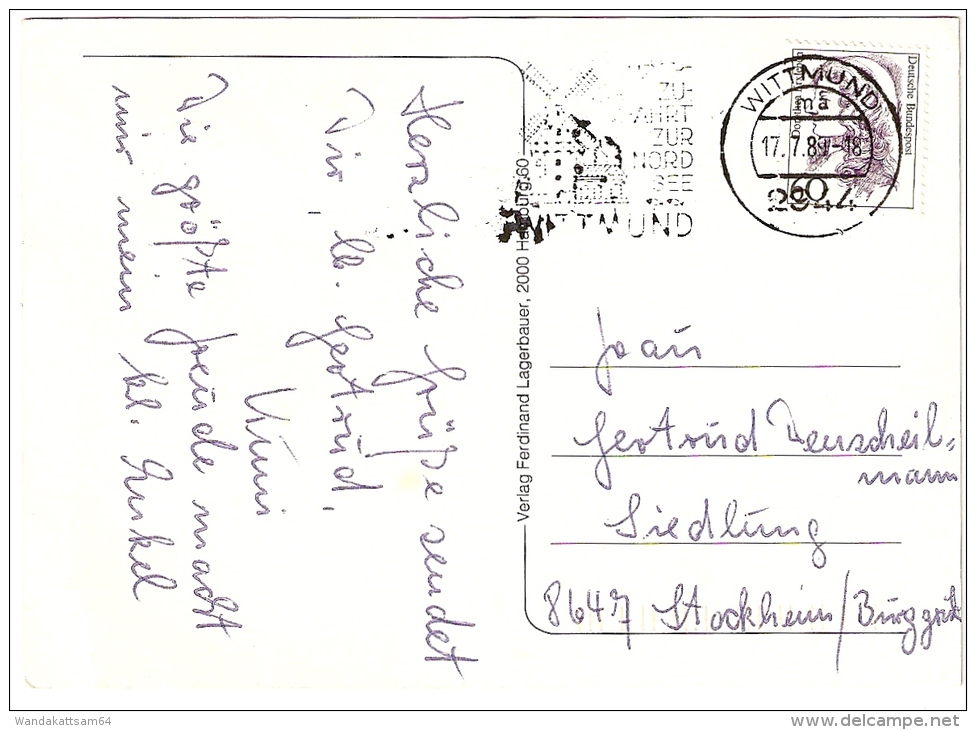 Herzliche Grüße sendet
Dir, lb. Gertrud,
Kuni
Die größte Freude macht
mir mein kl. Enkel
Verlag Ferdinand Lagerbauer, 2000 Hamburg 60
ZU-
FAHRT
ZUR
NORD
SEE
WITTMUND
WITTMUND
ma
17.7.89-18
2944
Deutsche Bundespost
60
Frau
Gertrud Denscheil-
mann
Siedlung
8647 Stockheim/Burggrub
Wandakattsam64
www.delcampe.net